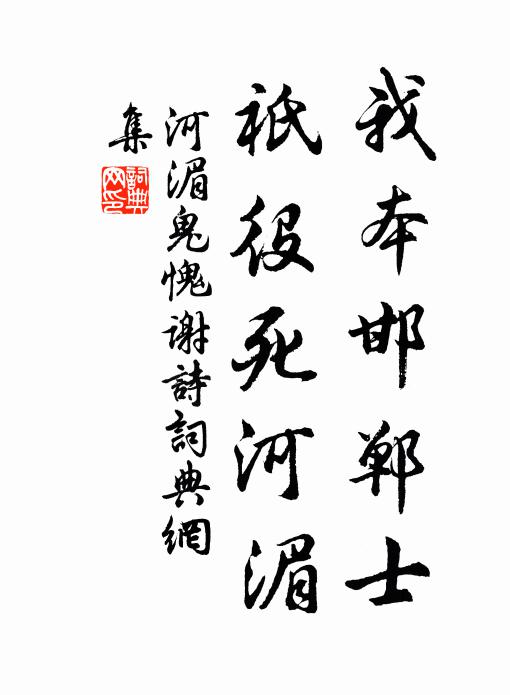 我本邯鄲士
祇役死河湄
河湄鬼愧謝詩詞典網
集
詞典網印